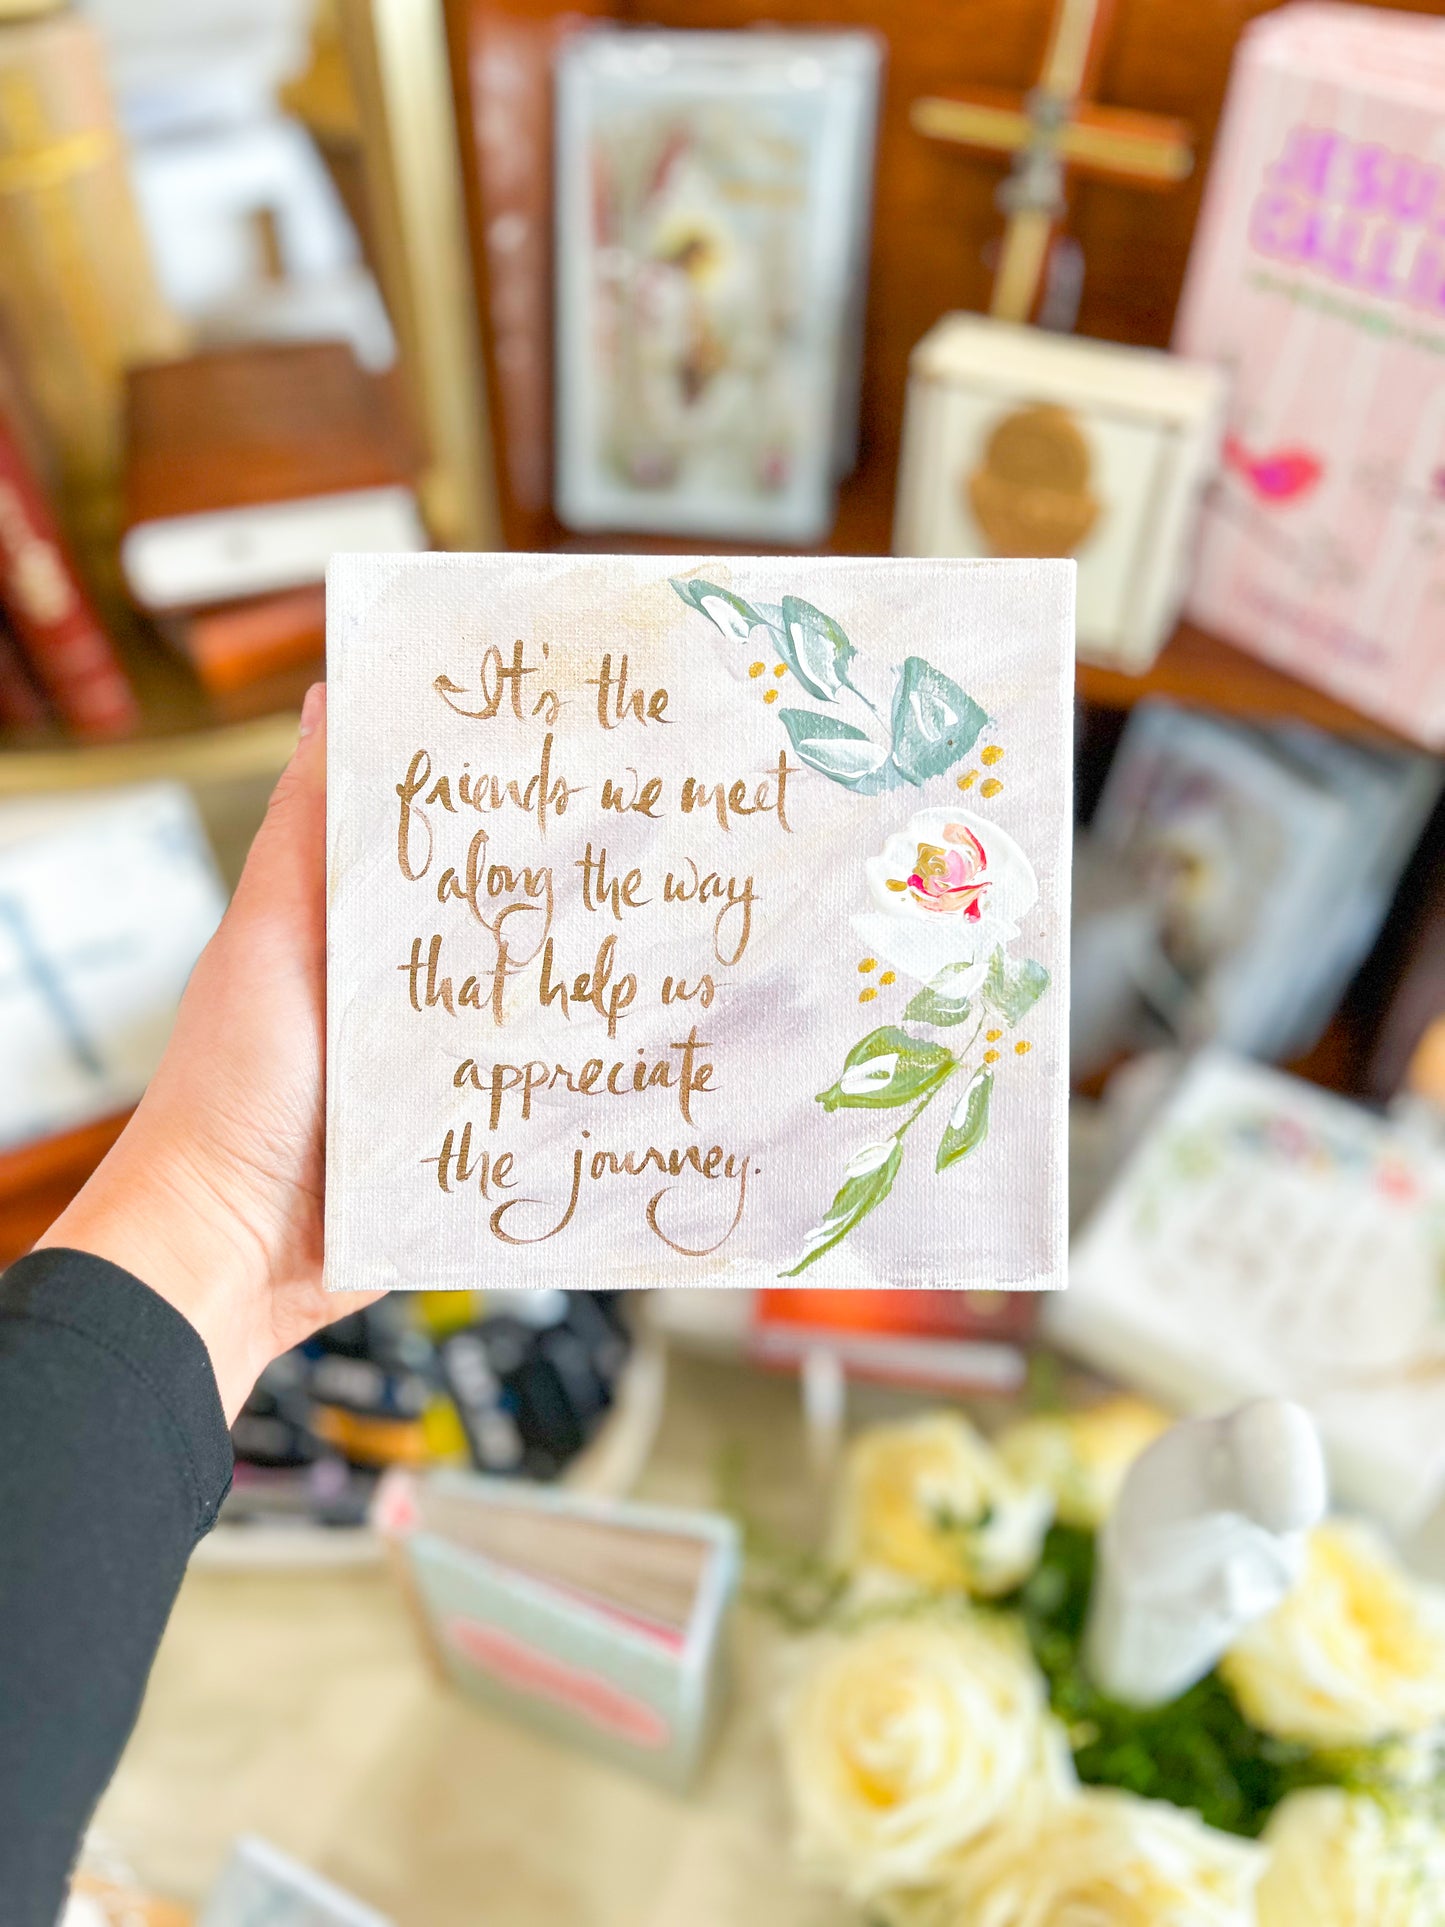 It's the
friends we meet
along the way
that help us
appreciate
the journey.
JESU
CALLI